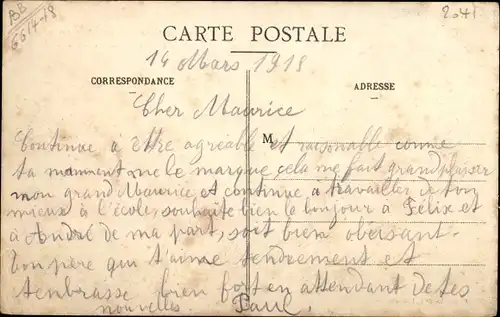 BB
6614-18
2041
CARTE POSTALE
14 Mars 1915
CORRESPONDANCE
ADRESSE
Cher Maurice
M
Continue a être agréable et raisonable comme
ta manment me le marque cela me fait grand plaiser
mon grand Maurice et continue a travailler de ton
mieux à l'école, souhaite bien le bonjour a Felix et
à André de ma part, soit bien obeisant.
bon père qui t'aime tendrement et
t'enbrasse bien fort en attendant de tes
nouvelles. Paul.